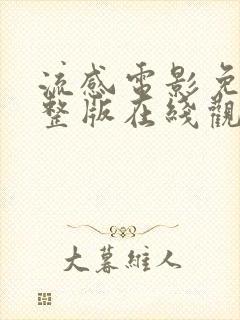 流感电影免
整版在线觀
大暮維人